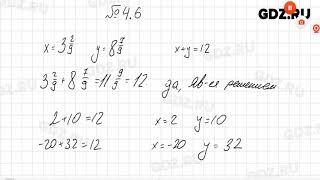 GDZ.RU
№4.6
x=3 2/9 y=8 7/9 x+y=12
3 2/9+8 7/9=11 9/9=12 да, яв-ся решением
2+10=12 x=2 y=10
-20+32=12 x=-20 y=32
GDZ.RU